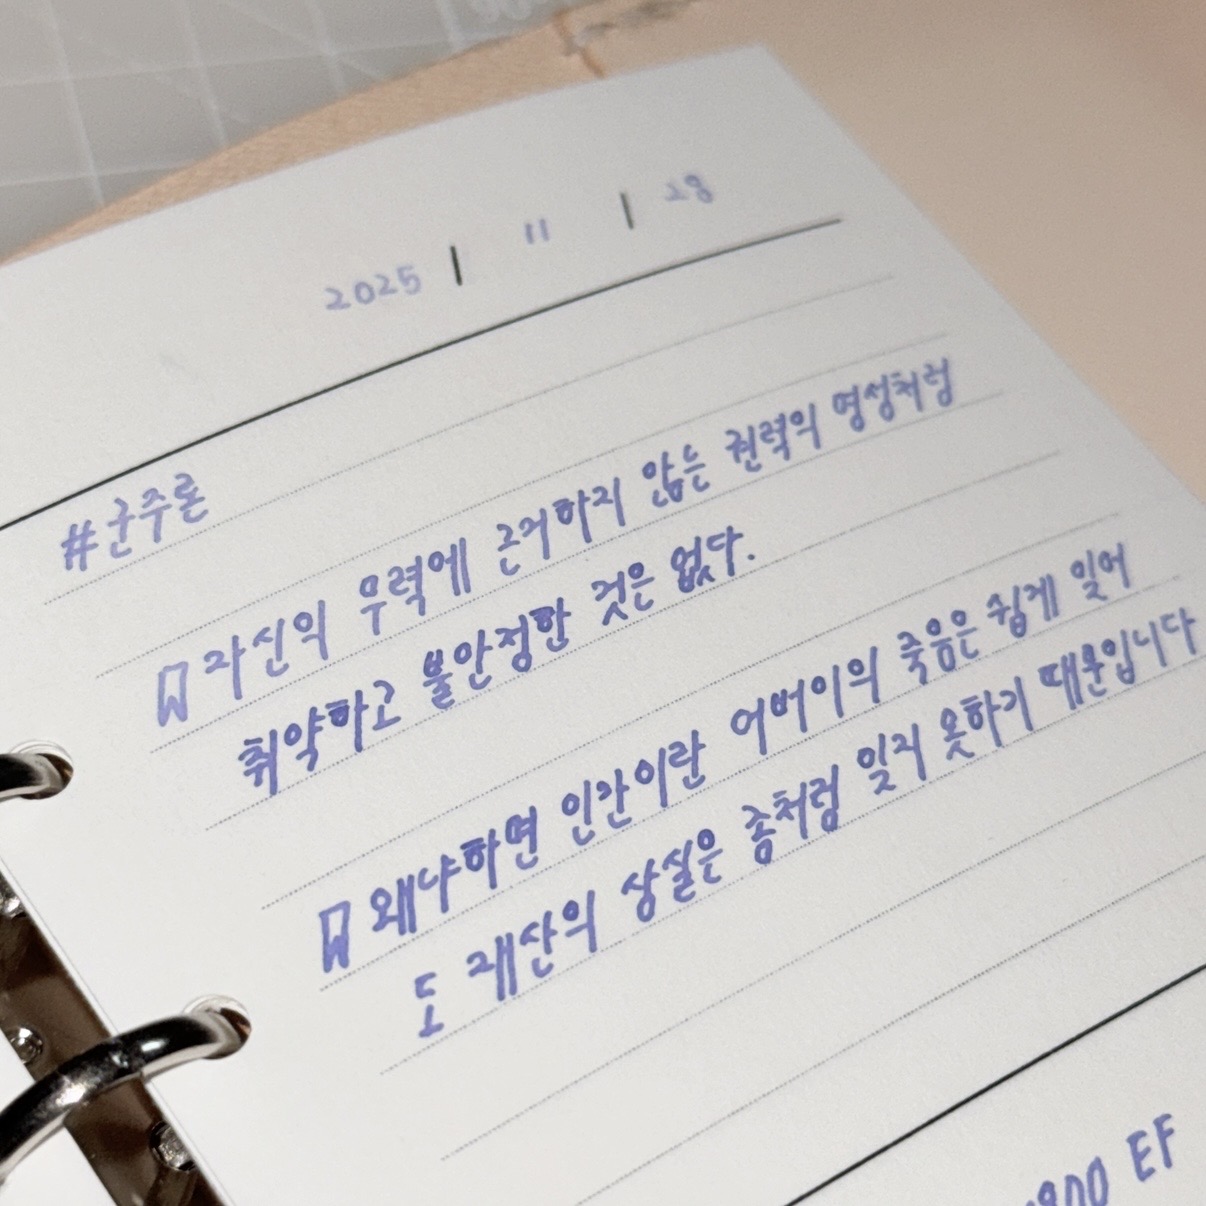 2025 | 11 | 28
#군주론
자신의 무력에 근거하지 않는 권력의 명성처럼
취약하고 불안정한 것은 없다.
왜냐하면 인간이란 어버이의 죽음은 쉽게 잊어
도 재산의 상실은 좀처럼 잊지 못하기 때문입니다
EF